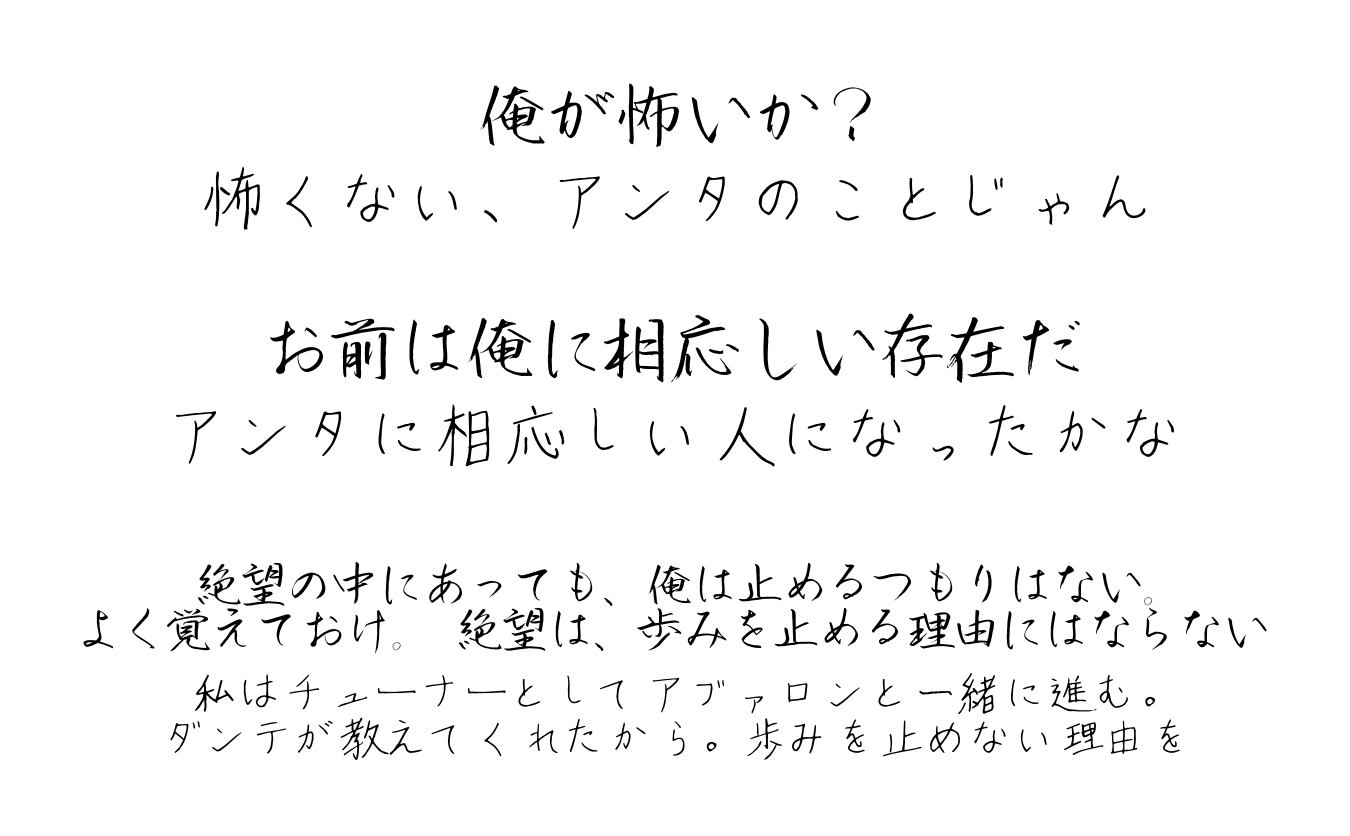 俺が怖いか？
怖くない、アンタのことじゃん
お前は俺に相応しい存在だ
アンタに相応しい人になったかな
絶望の中にあっても、俺は止めるつもりはない。
よく覚えておけ。 絶望は、歩みを止める理由にはならない
私はチューナーとしてアヴァロンと一緒に進む。
ダンテが教えてくれたから。歩みを止めない理由を